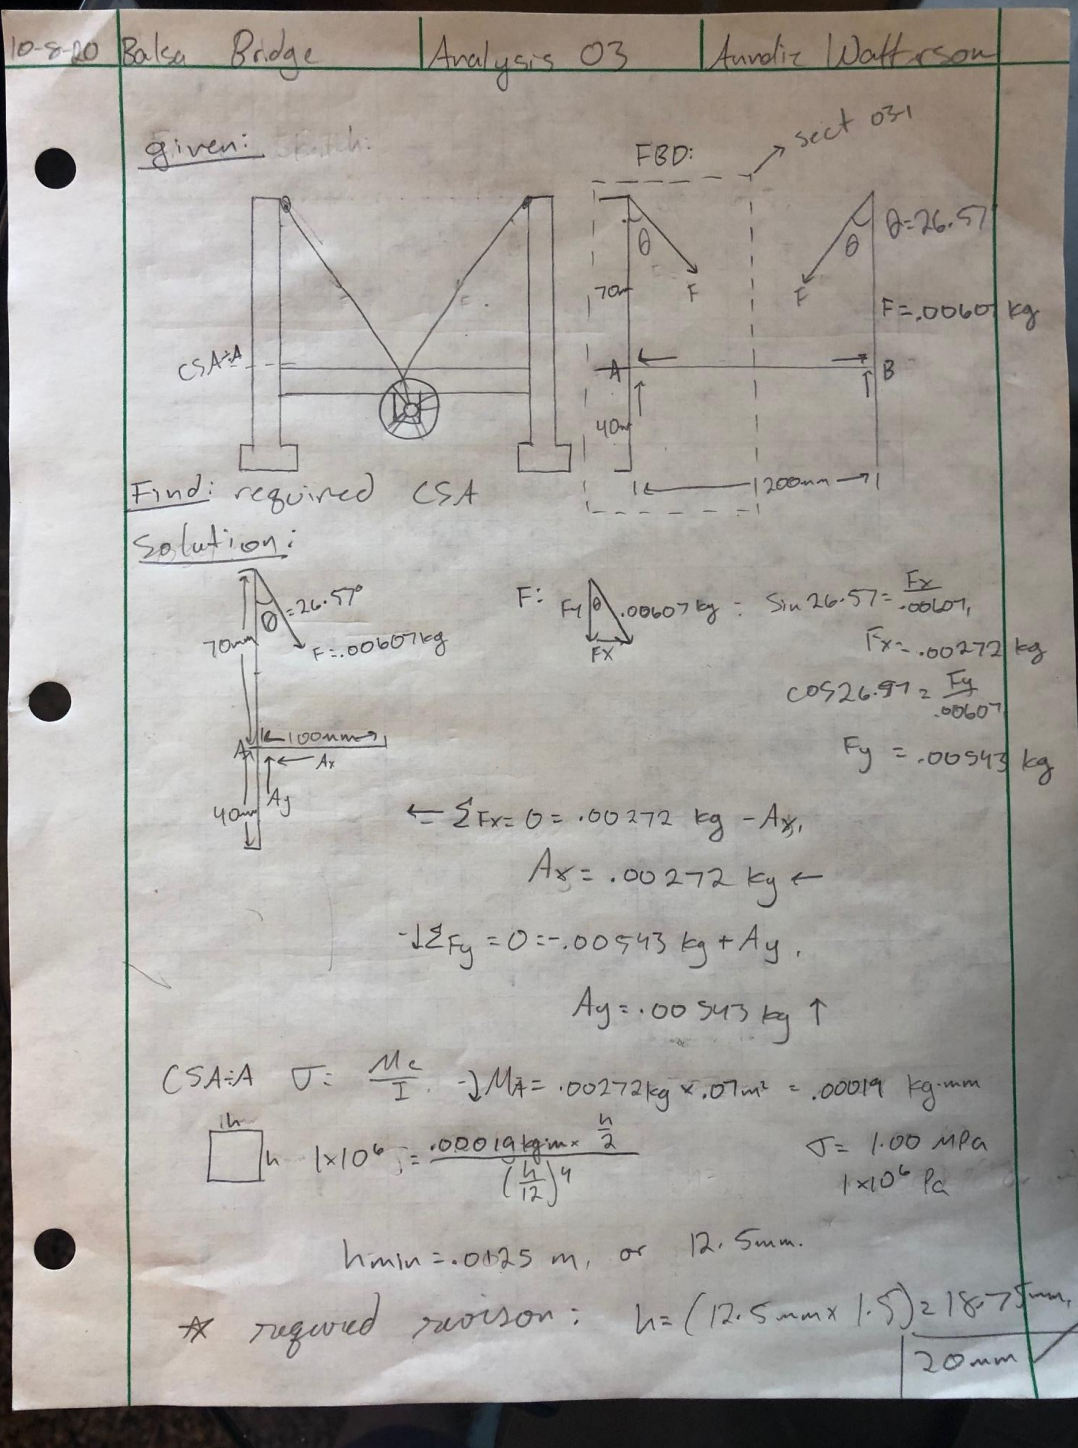 10-8-20 Balsa Bridge Analysis 03
given: Sketch:
FBD:
sect 03-1
θ=26.57
θ
θ
F
F
70m
F=.00607 kg
CSA÷A
A
B
40m
200mm
Find: required CSA
Solution:
θ=26.57°
70mm
F=.00607kg
F: Fy θ .00607 kg = Sin 26.57= Fx/.00607,
Fx
Fx=.00272 kg
cos26.57= Fy/.00607
Fy = .00543 kg
A 100mm
Ax
Ay
40mm
← ΣFx= 0 = .00272 kg - Ax,
Ax= .00272 kg ←
↓ΣFy = 0=-.00543 kg + Ay,
Ay=.00543 kg ↑
CSA÷A σ= Mc/I MA= .00272kg × .07m² = .00019 kg·mm
h
h 1×10⁶ = .00019kg·m× h/2 / (h/12)⁴
σ= 1.00 MPa
1×10⁶ Pa
hmin=.0125 m, or 12.5mm.
* required revison: h= (12.5mm× 1.5)=18.75mm,
20mm